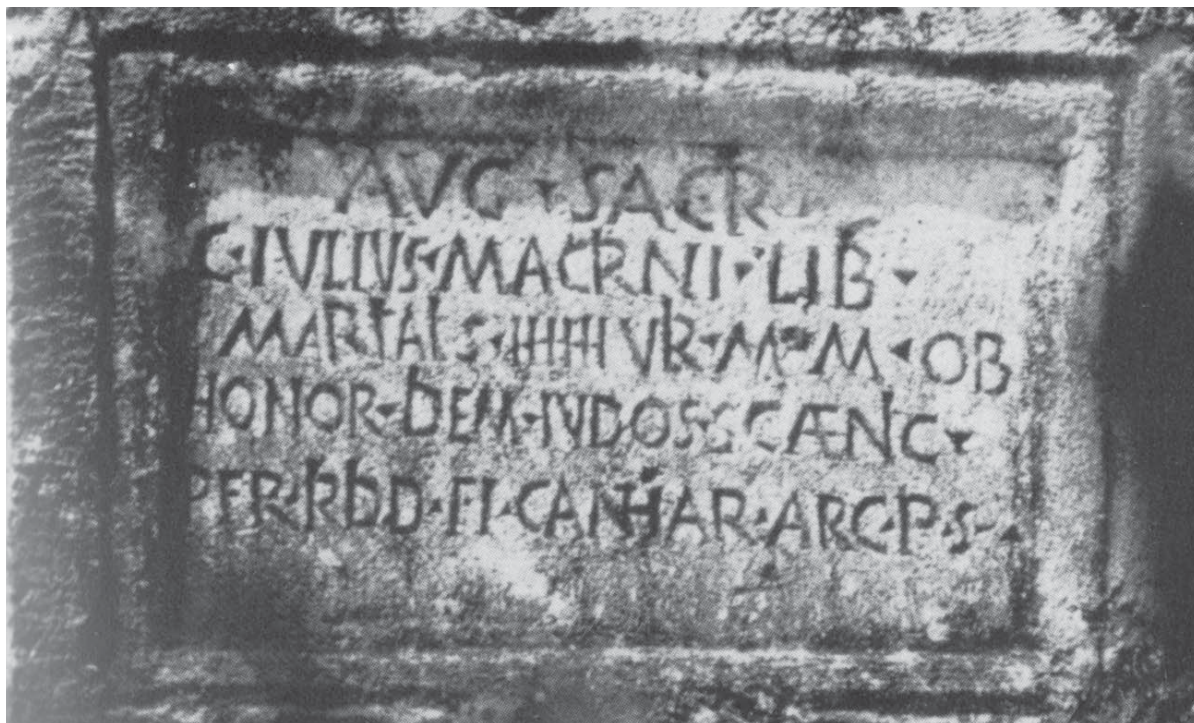 AVG · SACR
C · IVLIVS · MACRNI · LIB ·
MARTALS · IIIIII VIR · M · M · OB
HONOR · DEM · LVDOS · SCÆNC ·
PER · · D · ET · CANTHAR · ARG · P · S ·